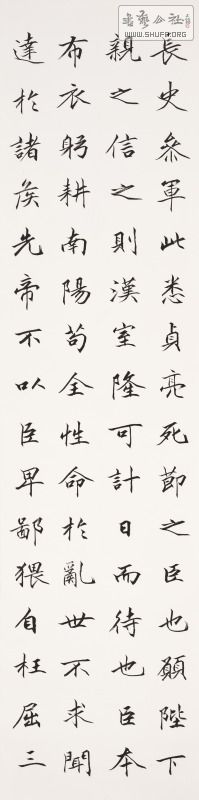 長史參軍此悉貞亮死節之臣也願陛下
親之信之則漢室隆可計日而待也臣本
布衣躬耕南陽苟全性命於亂世不求聞
達於諸侯先帝不以臣卑鄙猥自枉屈三
WWW.SHUFA.ORG